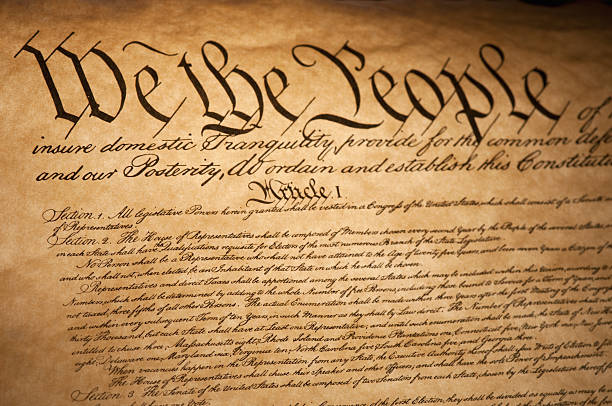 We the People of
insure domestic Tranquility, provide for the common defe
and our Posterity, do ordain and establish this Constitut
Article I
Section 1. All legislative Powers herein granted shall be vested in a Congress of the United States, which shall consist of a Senate
of Representatives.
Section 2. The House of Representatives shall be composed of Members chosen every second Year by the People of the several States,
in each State shall have the Qualifications requisite for Electors of the most numerous Branch of the State Legislature.
No Person shall be a Representative who shall not have attained to the Age of twenty five Years, and been seven Years a Citizen
and who shall not, when elected, be an Inhabitant of that State in which he shall be chosen.
Representatives and direct Taxes shall be apportioned among the several States which may be included within this Union, according to
Numbers, which shall be determined by adding to the whole Number of free Persons, including those bound to Service for a Term of Years
not taxed, three fifths of all other Persons. The actual Enumeration shall be made within three Years after the first Meeting of the Congress
and within every subsequent Term of ten Years, in such Manner as they shall by Law direct. The Number of Representatives shall not
thirty Thousand, but each State shall have at Least one Representative; and until such enumeration shall be made, the State of New
entitled to chuse three, Massachusetts eight, Rhode Island and Providence Plantations one, Connecticut five, New York six, New Jersey
eight, Delaware one, Maryland six, Virginia ten, North Carolina five, South Carolina five, and Georgia three.
When vacancies happen in the Representation from any State, the Executive Authority thereof shall issue Writs of Election to fill
The House of Representatives shall chuse their Speaker and other Officers; and shall have the sole Power of Impeachment.
Section 3. The Senate of the United States shall be composed of two Senators from each State, chosen by the Legislature thereof
of the first Election, they shall be divided as equally as may